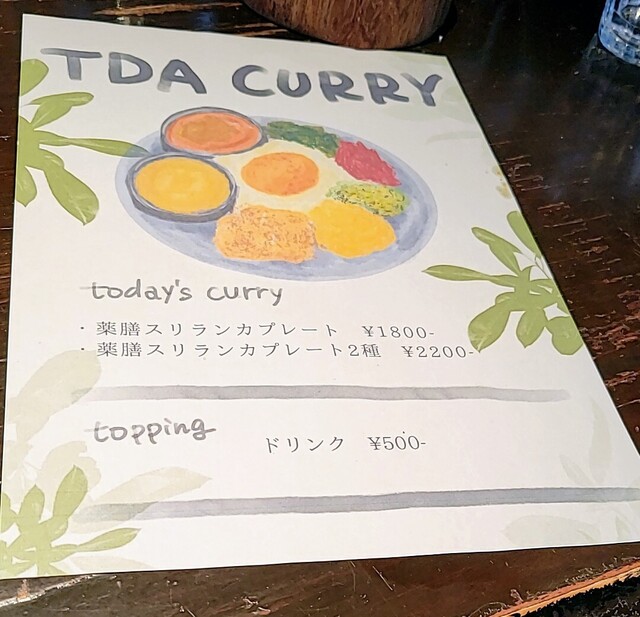 TDA CURRY
today's curry
・薬膳スリランカプレート ¥1800-
・薬膳スリランカプレート2種 ¥2200-
topping
ドリンク ¥500-